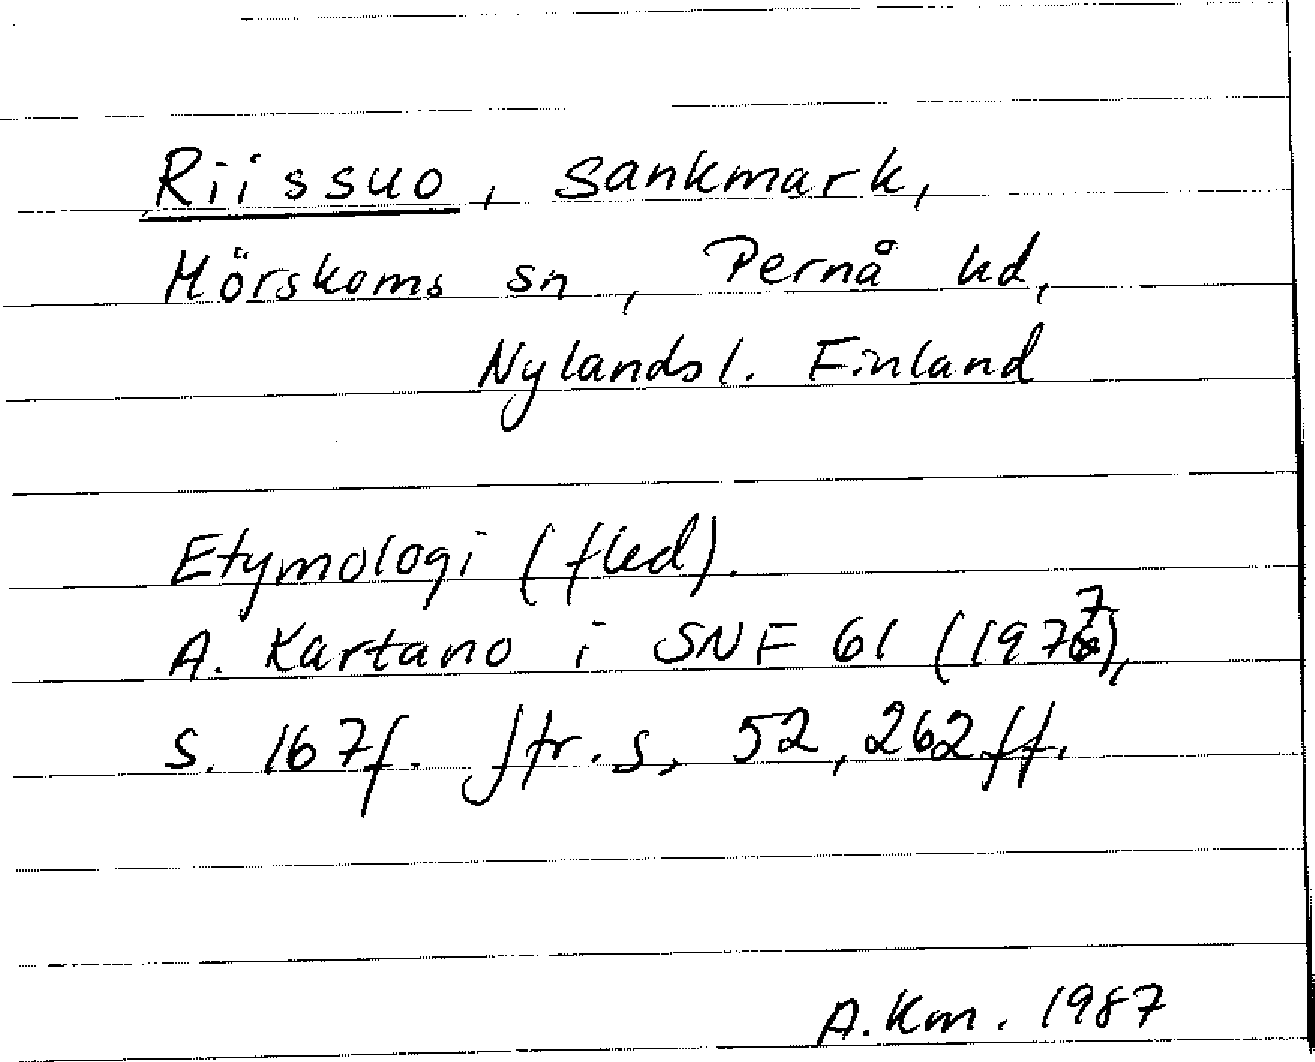 Riissuo, sankmark,
Mörskoms sn, Pernå hd,
Nylands l. Finland
Etymologi (fled).
A. Kartano i SNF 61 (1977),
s. 167f. Jfr. s. 52, 262ff.
A. Km. 1987